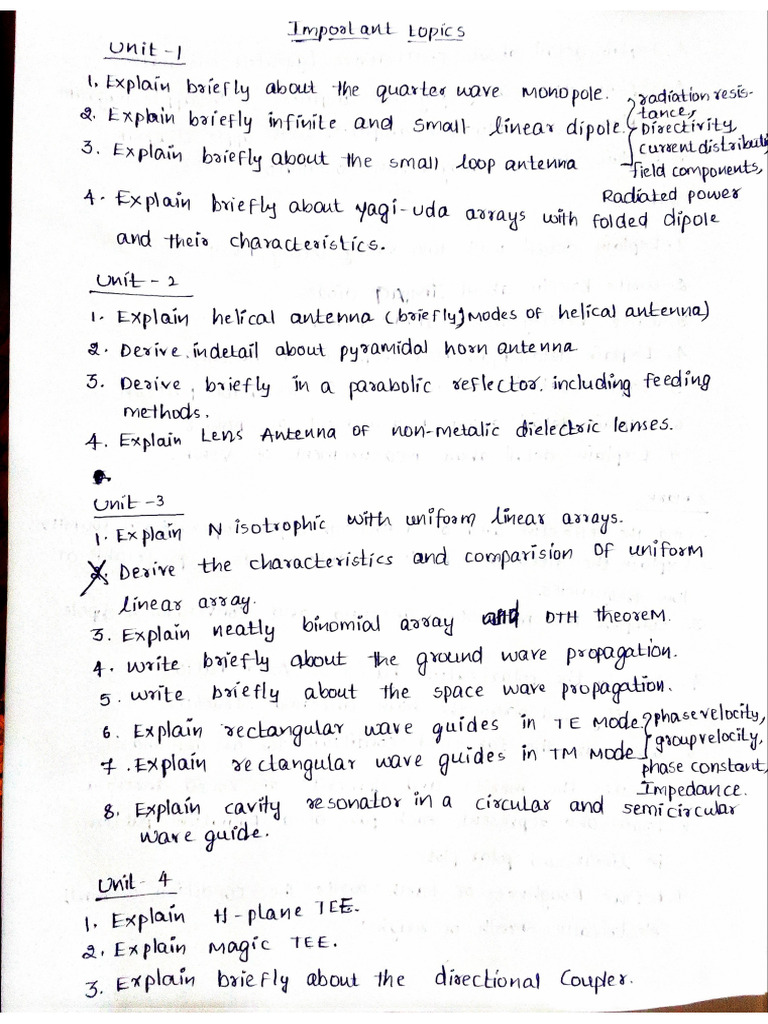 Impoalant topics
Unit -1
1. Explain briefly about the quarter wave monopole.
2. Explain briefly infinite and small linear dipole.
3. Explain briefly about the small loop antenna
radiation resis-
tance,
Directivity,
current distributi
field components,
Radiated power
4. Explain briefly about yagi-uda arrays with folded dipole
and their characteristics.
Unit - 2
1. Explain helical antenna (briefly) Modes of helical antenna)
2. Derive indetail about pyramidal horn antenna
3. Derive briefly in a parabolic reflector. including feeding
methods.
4. Explain Lens Antenna of non-metalic dielectric lenses.
Unit -3
1. Explain N isotrophic with uniform linear arrays.
2. Derive the characteristics and comparision of uniform
linear array.
3. Explain neatly binomial array and DTH theorem.
4. write briefly about the ground wave propagation.
5. write briefly about the space wave propagation.
6. Explain rectangular wave guides in TE Mode.
7. Explain rectangular wave guides in TM MODE
phase velocity,
group velocity,
phase constant,
Impedance.
8. Explain cavity resonator in a circular and semicircular
wave guide.
Unit - 4
1. Explain H-plane TEE.
2. Explain Magic TEE.
3. Explain briefly about the directional Coupler.